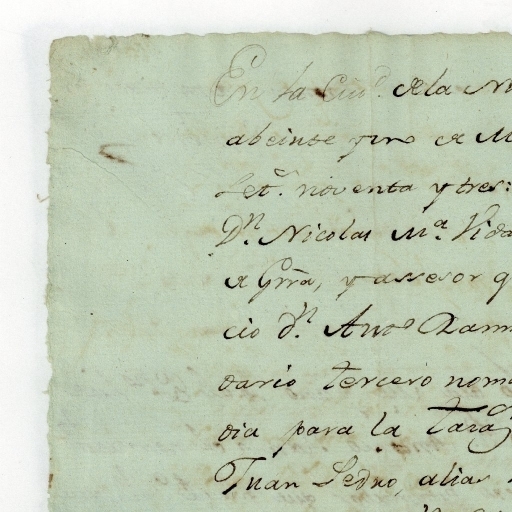 En la Ciud. de la Nu
abeinte y un de M
Set.ª noventa y tres:
D.n Nicolas M.ª Vida
de Grra, y assesor q
cio d.n Anto Ramn
dario tercero nom
dia para la Taza
Juan Pedro, alias